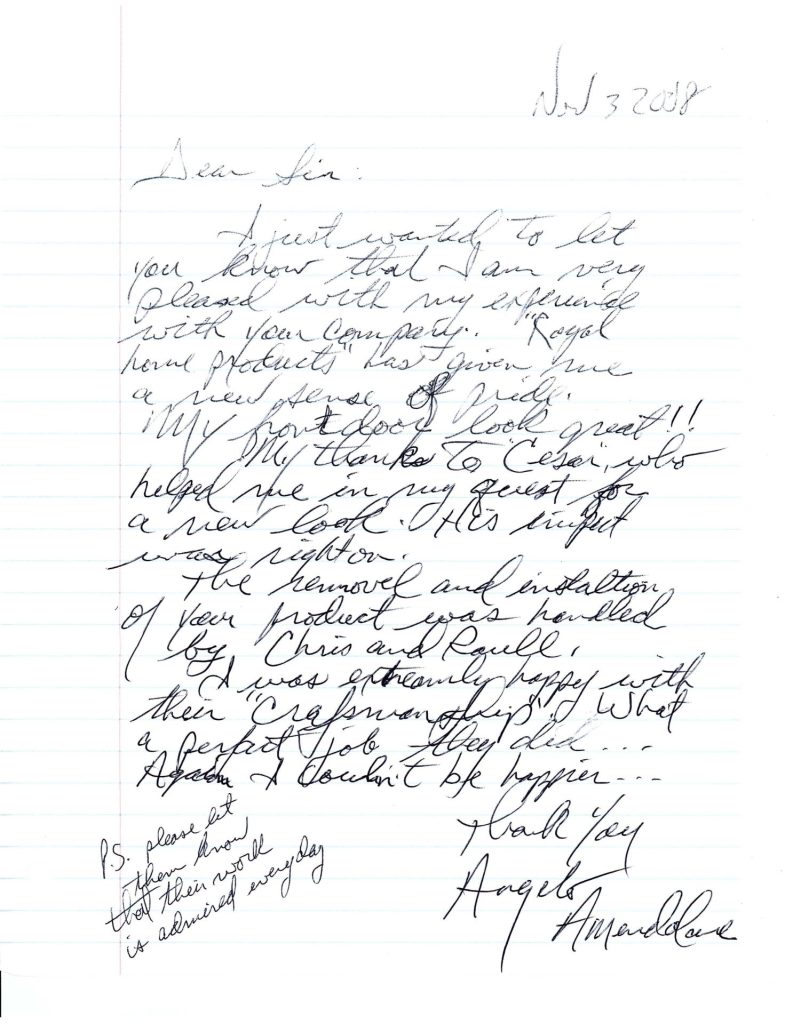 Nov 3 2008
Dear Sir:
I just wanted to let
you know that I am very
pleased with my experience
with your company. "Royal
home products" has given me
a new sense of pride.
My front door look great!!
My thanks to "Cesar", who
helped me in my quest for
a new look. His input
was right on.
The removel and instaltion
of your product was handled
by Chris and Raull.
I was extreamly happy with
their "Crafsmanship". What
a perfect job they did...
Again I couldn't be happier...
Thank You
Angelo
P.S. please let
them know
that their work
is admired everyday